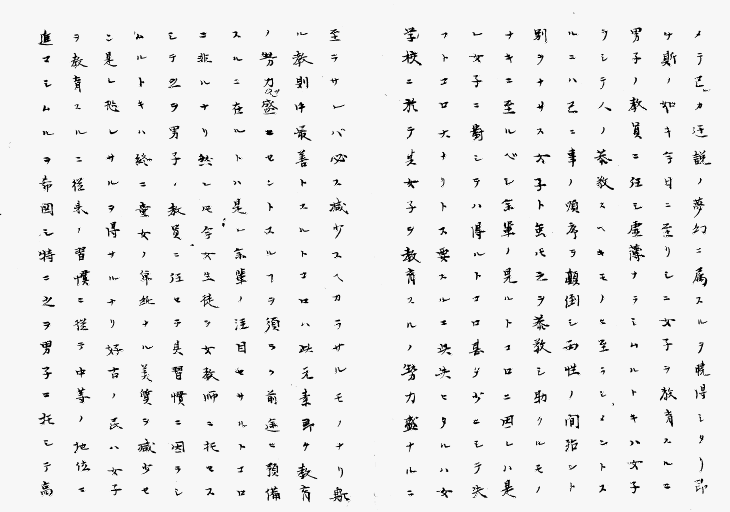 メテ己カ迂説ノ夢幻ニ属スルヲ暁得シタリ即
サ斯ノ如キ今日ニ至リシニ女子ヲ教育スルニ
男子ノ教員ニ任シ虚薄ナラシムルトキハ女子
ヲシテ人ノ恭敬スヘキモノニ至ラシメントス
ルニハ已ニ事ノ順序ヲ顛倒シ両性ノ間ニ
別ヲナサス女子ト雖モ之ヲ恭敬シ助クルモノ
ナキニ至ルベシ余輩ノ見ルトコロニ因レハ是
レ女子ニ對シテハ得ルトコロ甚タ少ニシテ失
フトコロ大ナリトス要スルニ決失ヒタルハ女
学校ニ於テ生女子ヲ教育スルノ勢力盛ナルニ
至ラサレバ必ス減少スヘカラサルモノナリ斯
ル教則中最善トスルトコロハ此元素即ケ教育
ノ勢力盛ニセントスルヿヲ須ラク前途ニ預備
スルニ在ルトハ是レ余輩ノ注目セサルトコロ
ニ非ルナリ然レ氏今女生徒ヲ女教師ニ托セス
シテ之ヲ男子ノ教員ニ任セテ其習慣ニ因ラシ
ムルトキハ終ニ童女ノ ナル美質ヲ減少セ
ン是レ恐レサルヲ得サルナリ好古ノ民ハ女子
ヲ教育スルニ従来ノ習慣ニ従テ中等ノ地位ニ
進マシムルヲ希図シ特ニ之ヲ男子ニ托シテ高